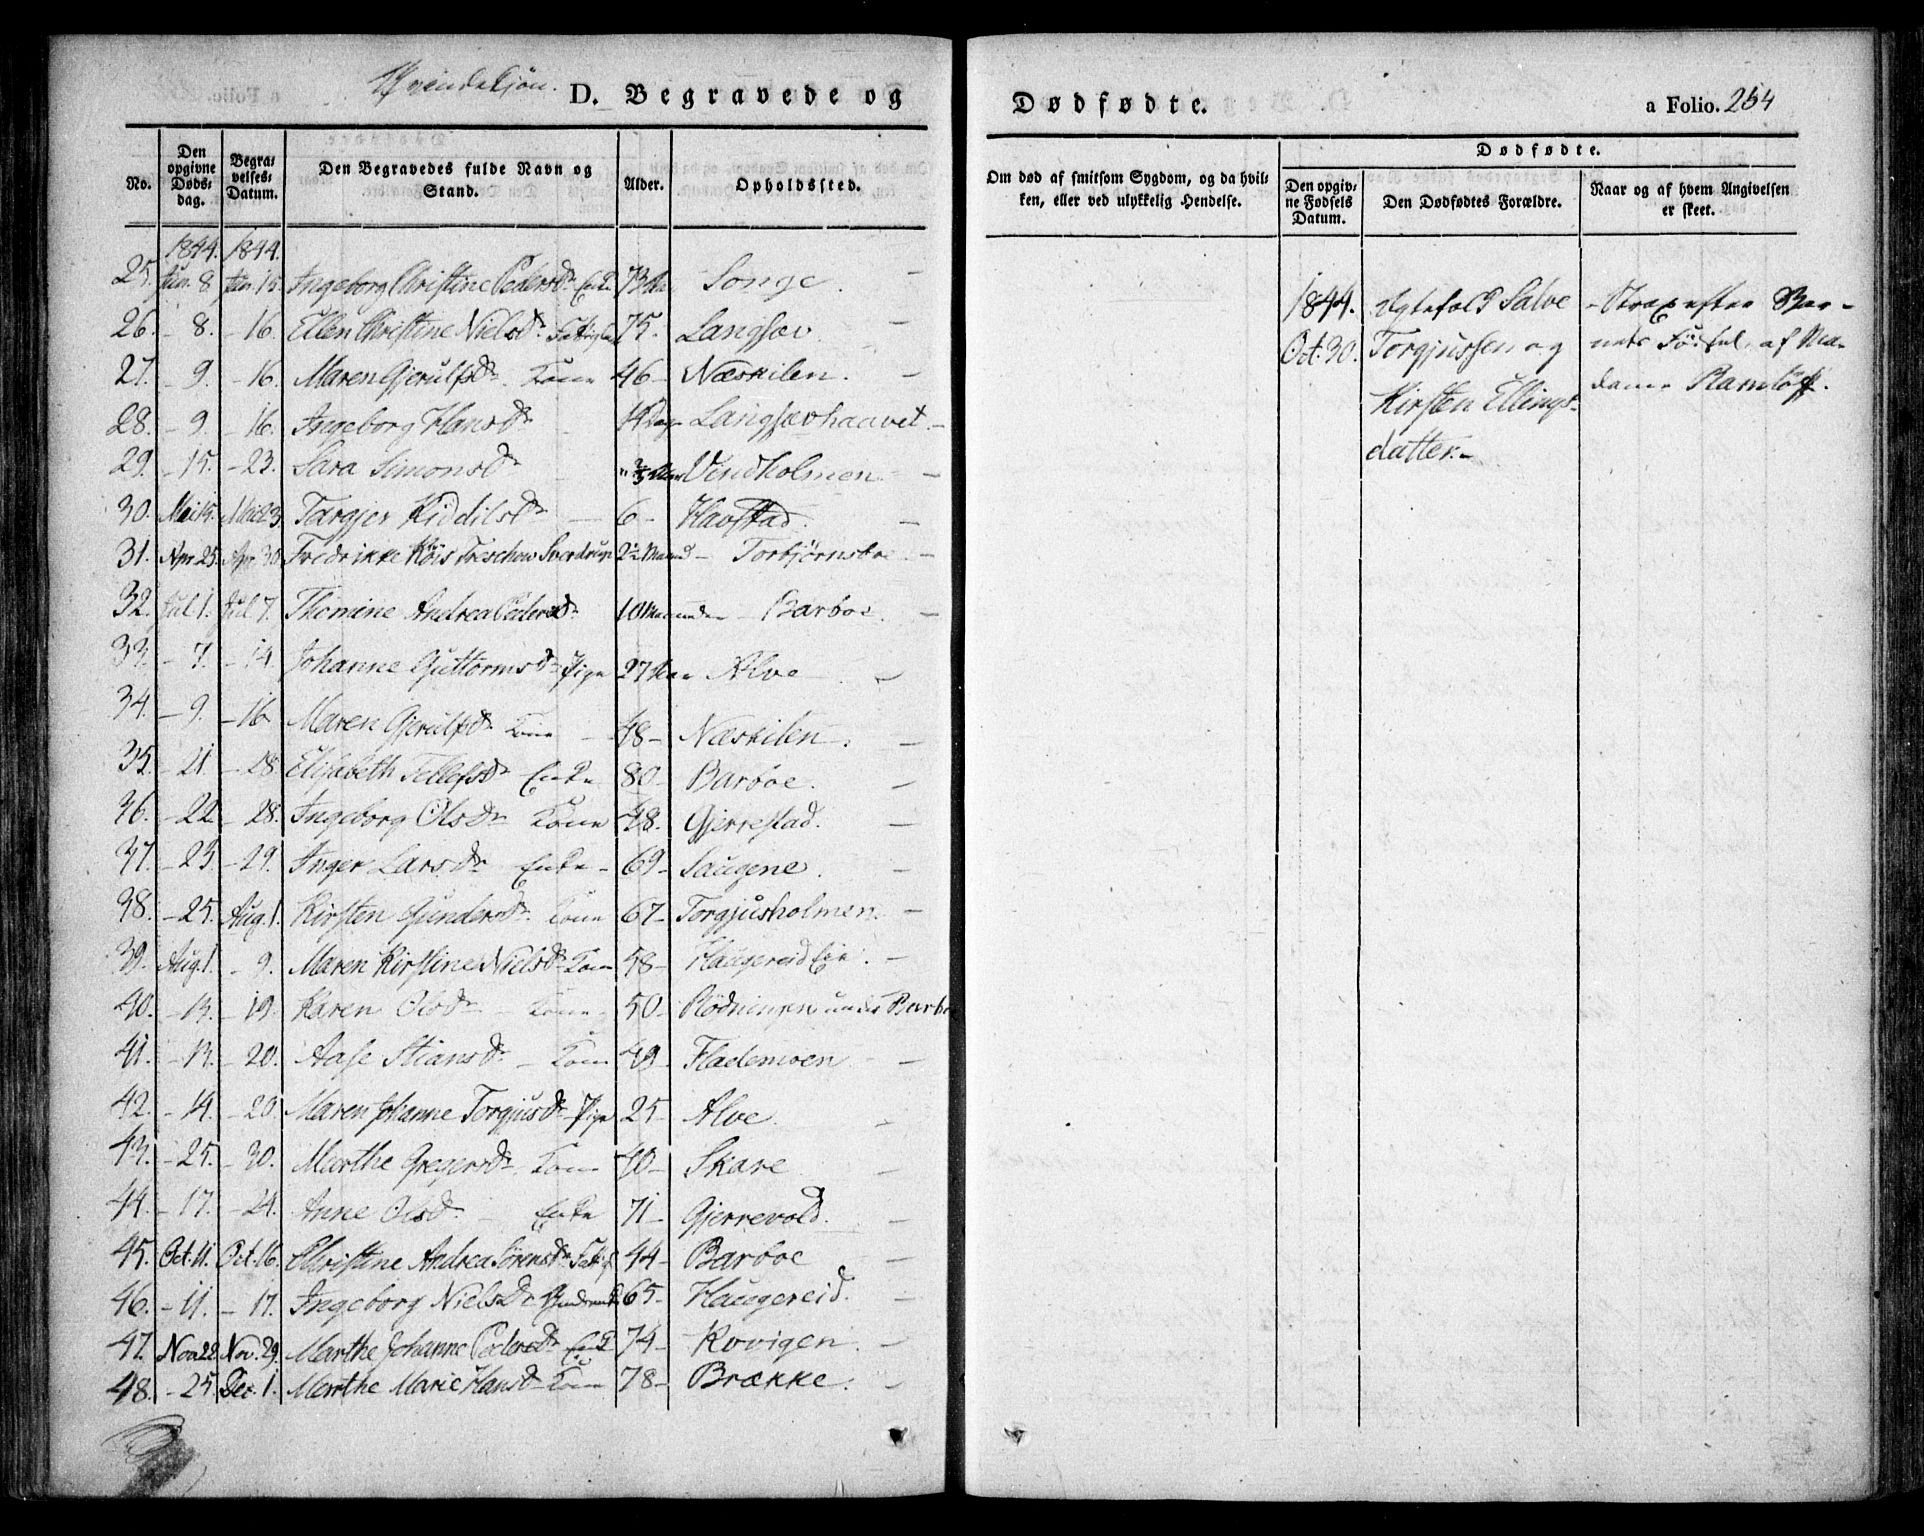 Qvindekjøn. D. Begravede og
No. Den opgivne Døds-dag. Begra-velses-Datum. Den Begravedes fulde Navn og Stand. Alder. Opholdssted.
1844. 1844.
25. Jun. 8. Jun. 15. Ingeborg Christine Pedersdr Enke 73 Aar Songe. —
26. — 8. — 16. Ellen Christine Nielsdr 75. Langsæv. —
27. — 9. — 16. Maren Gjerulfsdr. Kone 46 — Næskilen. —
28. — 9. — 16. Ingeborg Hansdr Langsævhaavet. —
29. — 15. — 23. Sara Simonsdr Vindholmen —
30. Mai 15. Mai 23. Targjer Kiddilsdr — 6 — Havstad. —
31. Apr. 25. Apr. 30. Fredrikke Köis Treschow Sverdrup 2½ Maaned — Torbjørnsboe —
32. Jul 1. Jul 7. Thomine Andrea Pedersdr 10 Maaneder — Barboe. —
33. — 7. — 14. Johanne Guttormsdr Pige 27 Aar Alve —
34. — 9. — 16 Maren Gjerulfsdr Kone — 48 — Næskilen. —
35. — 21 — 28. Elisabeth Tellefsdr Enke 80 — Barboe. —
36. — 22 — 28. Ingeborg Olsdr Kone 48. Gjerrestad. —
37. — 23. — 29. Inger Larsdr Enke — 69 — Saugene. —
38. — 25. Aug. 1. Kirsten Gundersdr. Kone 67 — Torgjusholmen. —
39. Aug. 1. — 9. Maren Kirstine Nielsdr Kone 58 — Haugereid Eie. —
40. — 13. — 19. Karen Olsdr — Kone 50. — Rødningen under Barboe
41. — 13. — 20. Aase Stiansdr — Kone 49 — Flademoen —
42. — 14. — 20. Maren Johanne Torgjusdr Pige 25 — Alve.
43. — 25. — 30. Marthe Gregersdr. Kone 40 — Skare —
44. — 17. — 24. Anne Olsdr. — Enke 71 — Gjerrevold. —
45. Oct. 11. Oct. 16. Christine Andrea Sørensdr 44 — Barboe —
46. — 11. — 17. Ingeborg Nielsdr 65 — Haugereid. —
47. Nov 22. Nov. 29. Marthe Johanne Pedersdr Enke 74 — Kovigen. —
48. — 25. Dec. 1. Marthe Marie Hansdr Kone 78 — Brække. —
Dødfødte. a Folio. 254
Om død af smitsom Sygdom, og da hvil-
ken, eller ved ulykkelig Hendelse.
Dødfødte.
Den opgiv-
ne Fødsels
Datum.
Den Dødfødtes Forældre.
Naar og af hvem Angivelsen
er skeet.
1844. Ægtefolk Salve Strax efter Bar-
Oct. 30. Torgjussen og nets Fødsel, af Ma-
Kirsten Ellings- dame Ramløff.
datter.